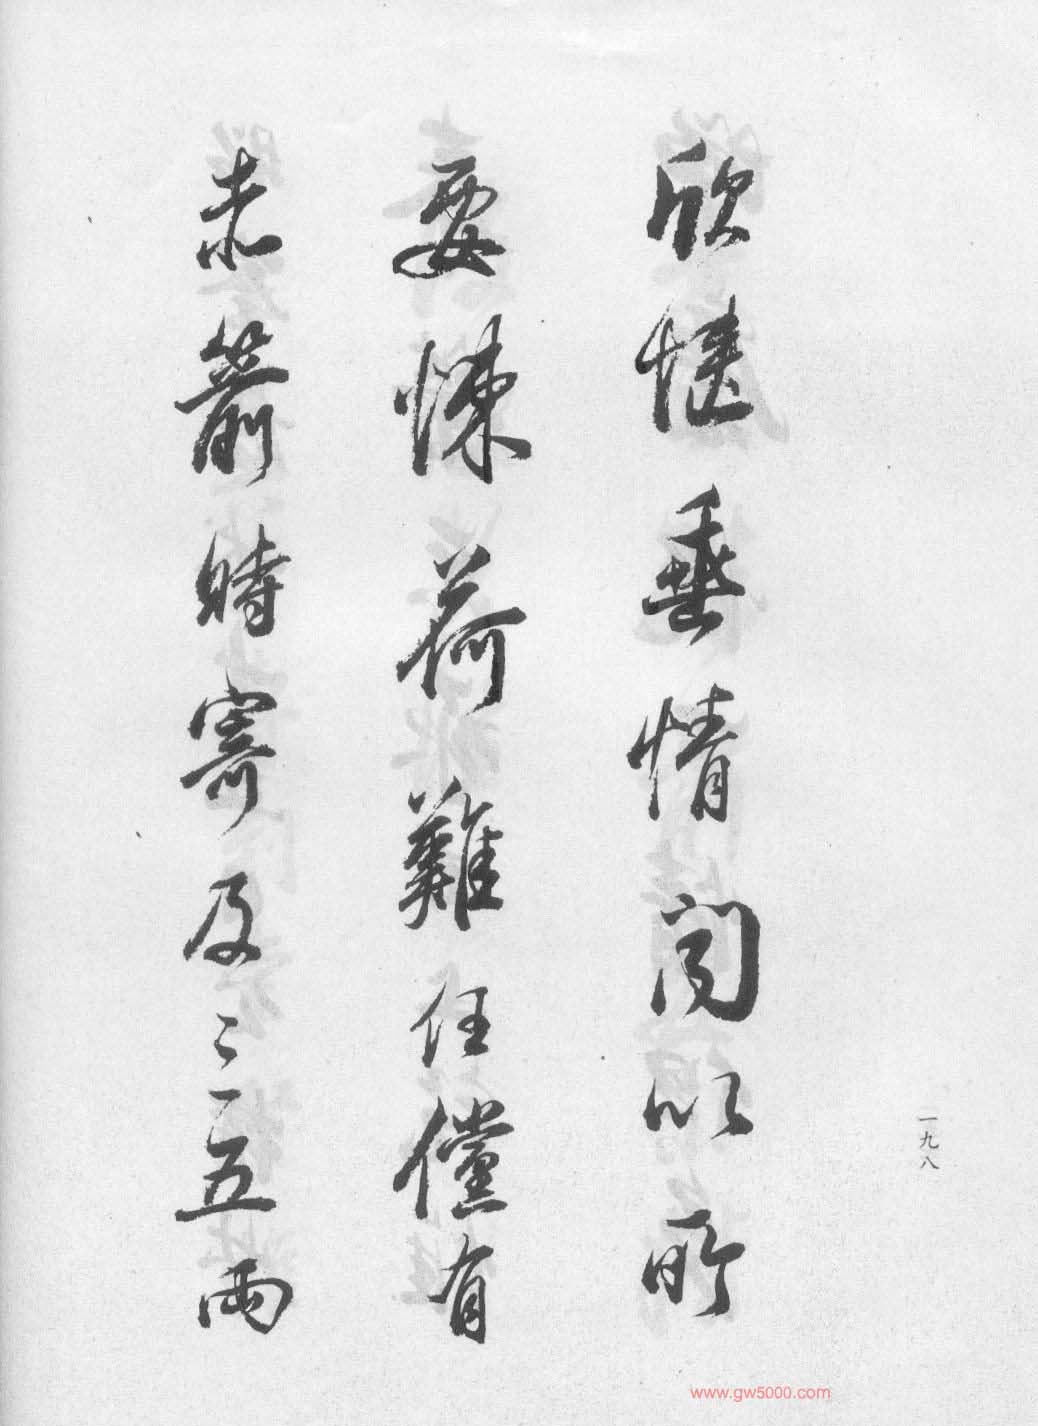 欣愜垂情問以所
要悚荷難任儻有
赤箭時寄及三五兩
一九八
www.gw5000.com